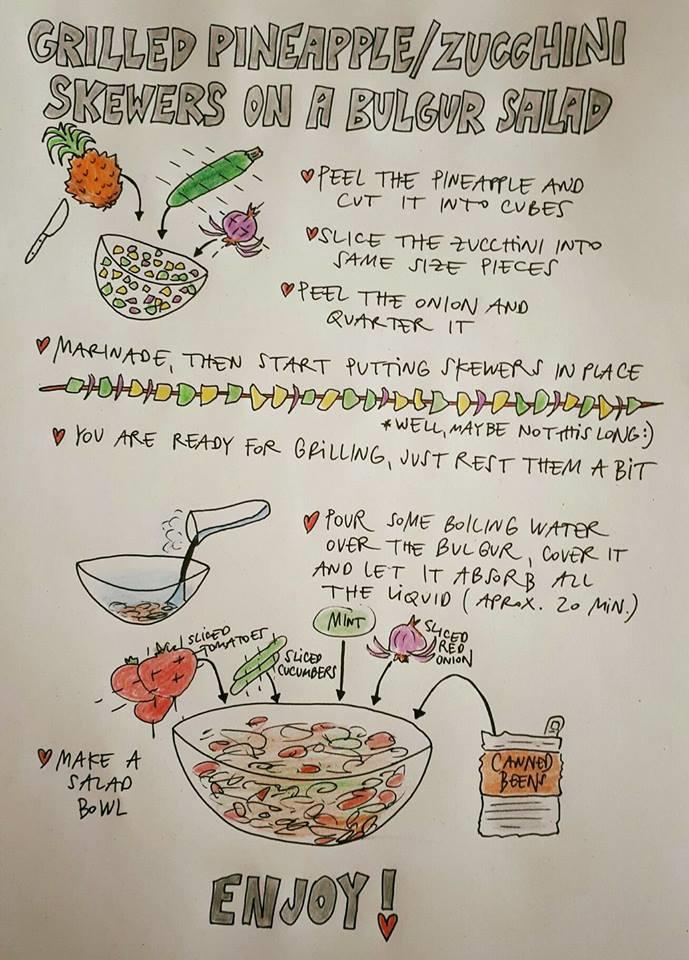 GRILLED PINEAPPLE/ZUCCHINI
SKEWERS ON A BULGUR SALAD
PEEL THE PINEAPPLE AND
CUT IT INTO CUBES
SLICE THE ZUCCHINI INTO
SAME SIZE PIECES
PEEL THE ONION AND
QUARTER IT
MARINADE, THEN START PUTTING SKEWERS IN PLACE
*WELL, MAYBE NOT THIS LONG:)
YOU ARE READY FOR GRILLING, JUST REST THEM A BIT
POUR SOME BOILING WATER
OVER THE BULGUR, COVER IT
AND LET IT ABSORB ALL
THE LIQUID (APROX. 20 MIN.)
SLICED
TOMATOES
SLICED
CUCUMBERS
MINT
SLICED
RED
ONION
CANNED
BEENS
MAKE A
SALAD
BOWL
ENJOY!